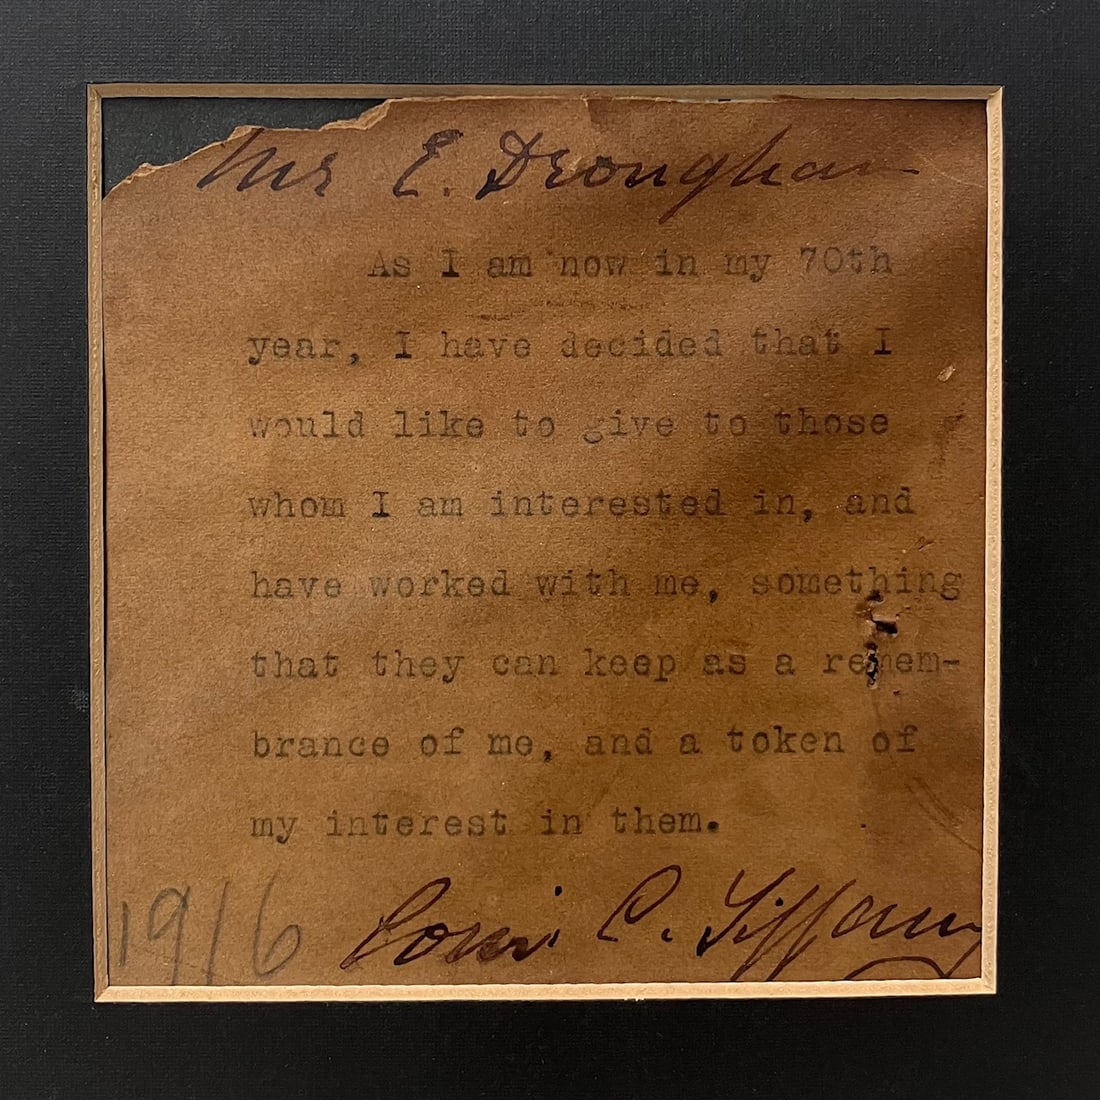 Mr E. Droughan
As I am now in my 70th
year, I have decided that I
would like to give to those
whom I am interested in, and
have worked with me, something
that they can keep as a remem-
brance of me, and a token of
my interest in them.
1916 Louis C. Tiffany